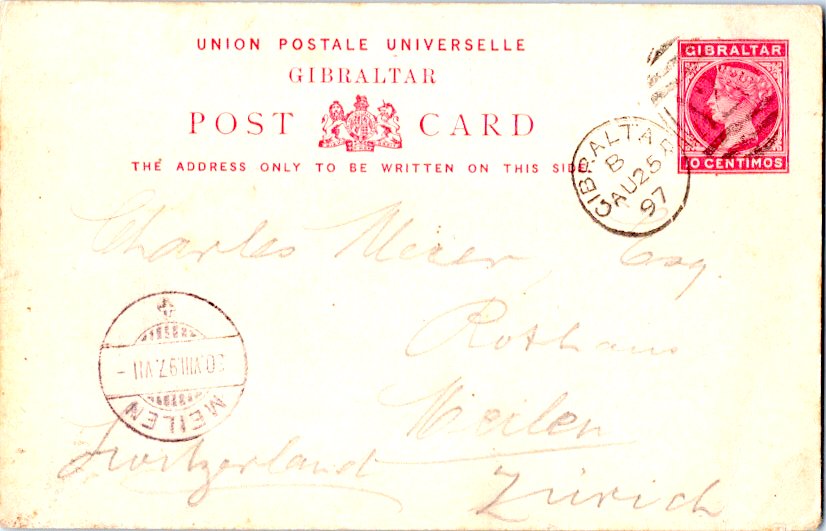 UNION POSTALE UNIVERSELLE
GIBRALTAR
POST CARD
THE ADDRESS ONLY TO BE WRITTEN ON THIS SIDE.
GIBRALTAR
10 CENTIMOS
GIBRALTAR
B
AU25
97
Charles Meier Esq.
Rothaus
Meilen
Switzerland
Zürich
30.VIII.97.VII -
MEILEN